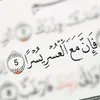 فَإِنَّ مَعَ الْعُسْرِ يُسْرًا 5